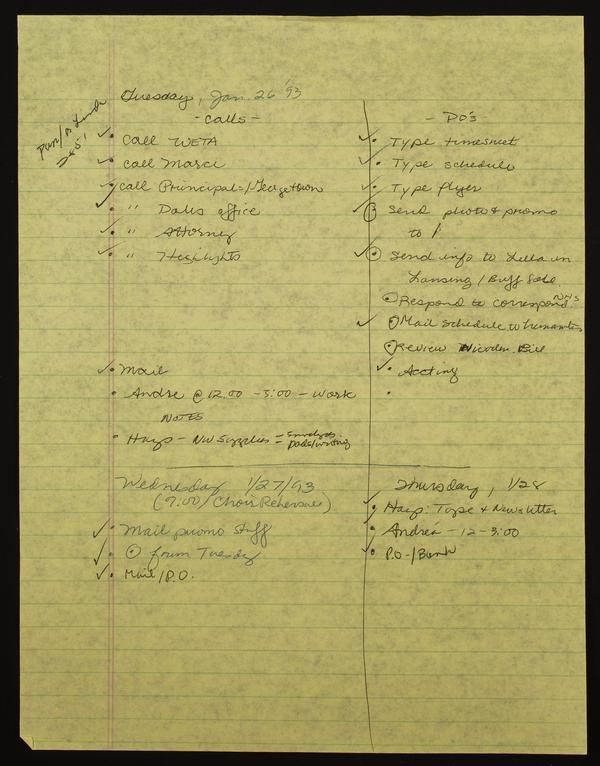 Tuesday, Jan. 26 '93
- Calls -
Call WETA
Call Marci
Call Principals/Georgetown
" Dales office
" Attorney
" Heglights
Mail
Andre @ 12:00 - 3:00 - Work
NOTES
Hays - NW Supplies = Envelopes
= Pads/writing
- DO's -
Type timesheet
Type schedule
Type flyer
Send photo & promo
to
Send info to Lella in
Lansing / Buff Sale
Respond to correspond
Mail schedule to humanities
Review Bill
Accting
Wednesday 1/27/93
(7:00/Choir Rehearsal)
Mail promo stuff
from Tuesday
Mail/P.O.
Thursday, 1/28
Hays: Tape & Newsletter
Andrea - 12-3:00
P.O./Bank